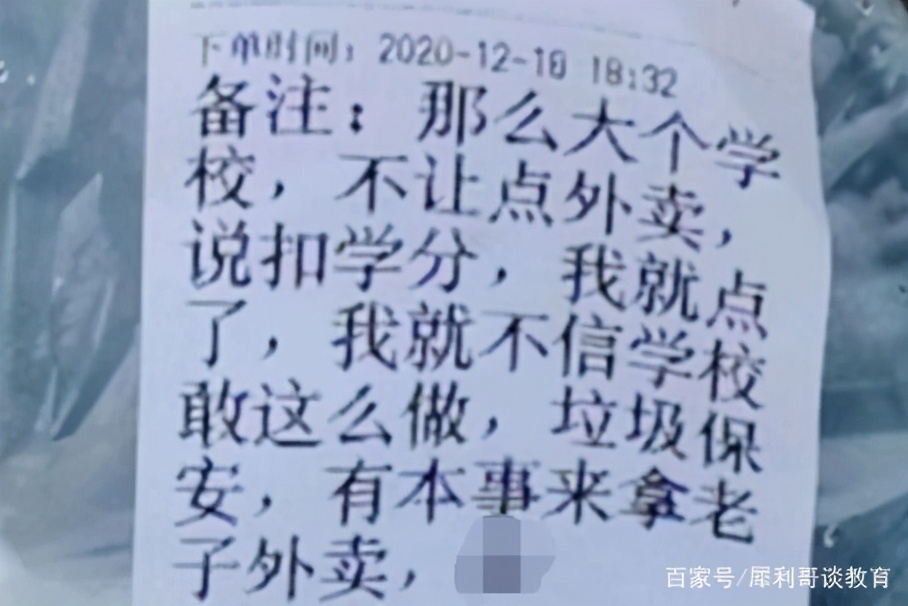 下单时间：2020-12-10 18:32
备注：那么大个学
校，不让点外卖，
说扣学分，我就点
了，我就不信学校
敢这么做，垃圾保
安，有本事来拿老
子外卖，
百家号/犀利哥谈教育